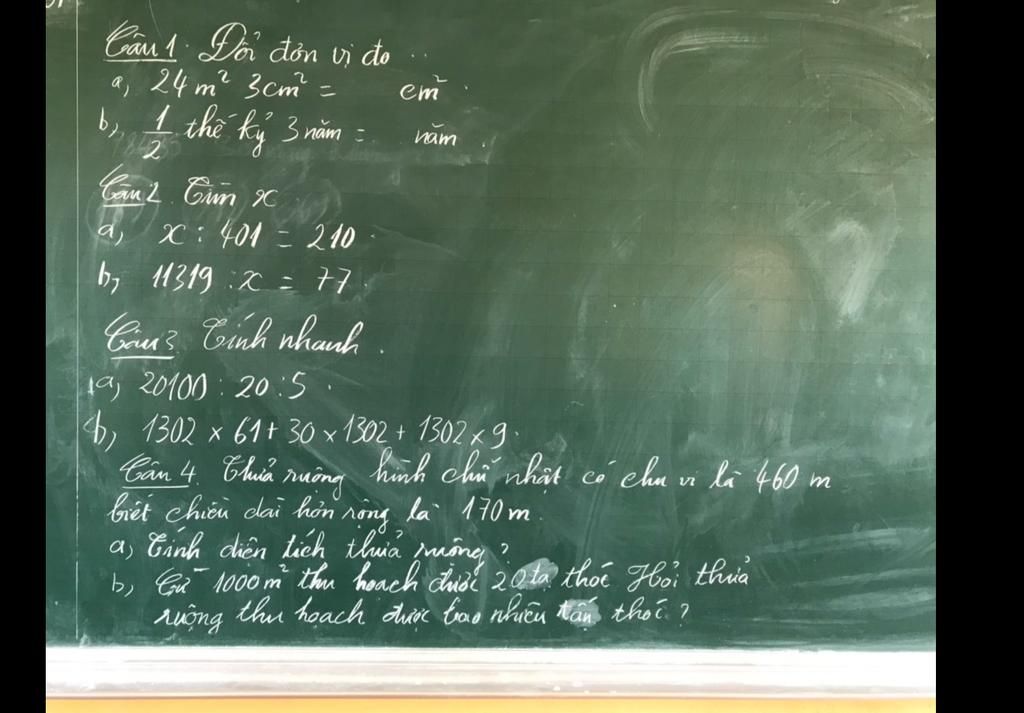 Câu 1. Đổi đơn vị đo
a, 24 m² 3cm² = cm²
b, 1/2 thế kỷ 3 năm = năm
Câu 2. Tìm x
a, x : 401 = 210
b, 11319 : x = 77
Câu 3 Tính nhanh.
a, 20100 : 20 : 5
b, 1302 x 61 + 30 x 1302 + 1302 x 9.
Câu 4. Thửa ruộng hình chữ nhật có chu vi là 460 m
biết chiều dài hơn rộng là 170 m.
a, Tính diện tích thửa ruộng?
b, Cứ 1000 m² thu hoạch được 20 tạ thóc Hỏi thửa
ruộng thu hoạch được bao nhiêu tấn thóc?